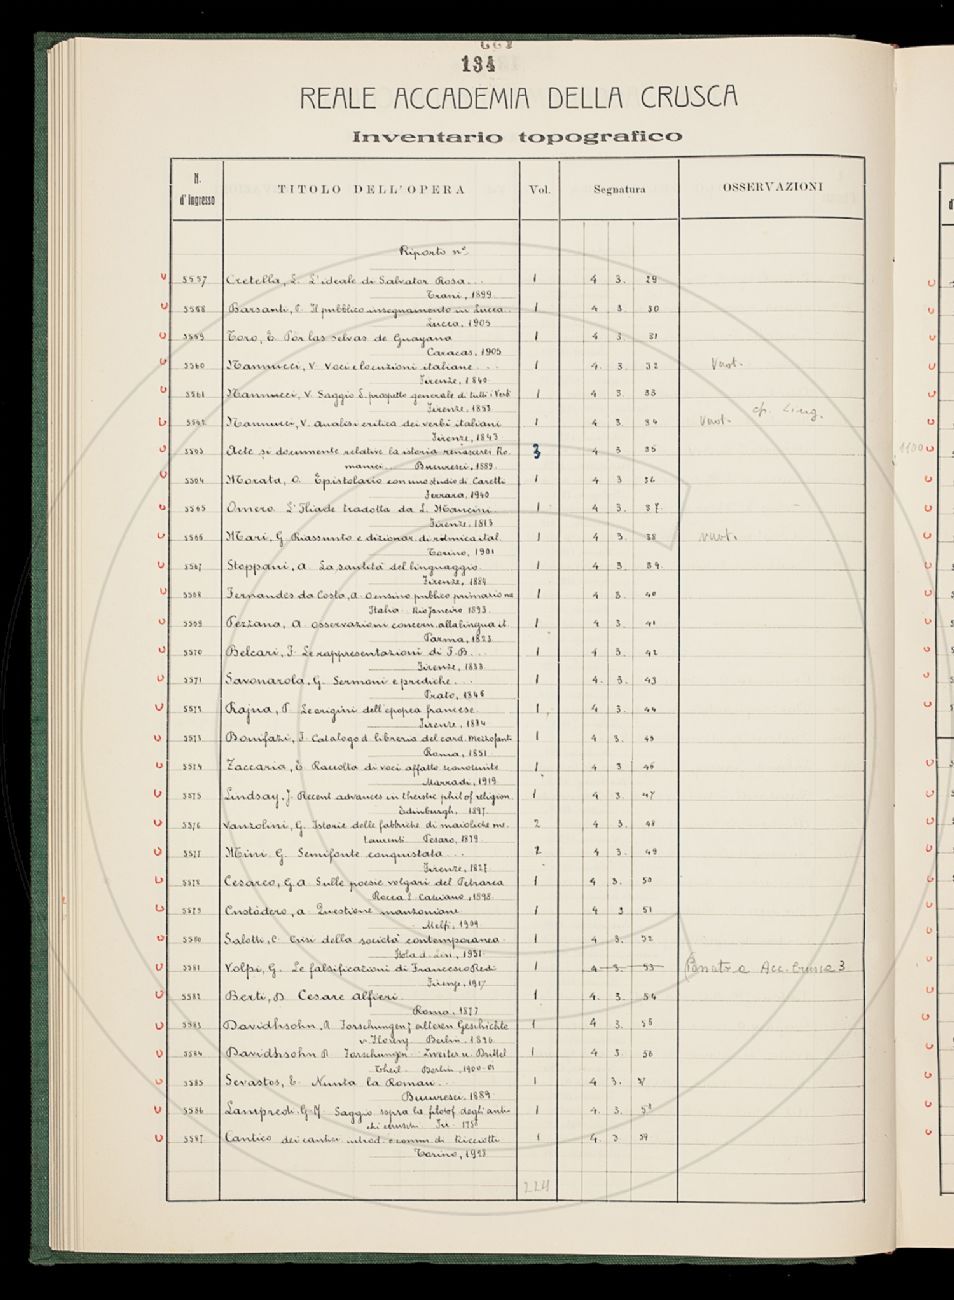 134
REALE ACCADEMIA DELLA CRUSCA
Inventario topografico
N. d'Ingresso TITOLO DELL'OPERA Vol. Segnatura OSSERVAZIONI
Riporto nº
5557 Cretella, L. L'ideale di Salvator Rosa... 1 4 3. 29
Trani, 1899
5558 Barsanti, P. Il pubblico insegnamento in Lucca.. 1 4 3 30
Lucca, 1905
5559 Toro, E. Por las selvas de Guayana 1 4 3 31
Caracas, 1905
5560 Nannucci, V. Voci e locuzioni italiane... 1 4. 3. 32 Vuot.
Firenze, 1840
5561 Nannucci, V. Saggio d. prospetto generale di tutti i Verb 1 4 3 33
Firenze, 1853
5562 Nannucci, V. Analisi critica dei verbi italiani 1 4 3. 34 Vuot. cfr. Ling.
Firenze, 1843
5563 Acte si documente relative la istoria renascerei Ro- 3 4 3 35
maniei... Bucuresci, 1889
5564 Morata, O. Epistolario con uno studio di Caretti 1 4 3 36
Ferrara, 1940
5565 Omero. L'Iliade tradotta da L. Mancini 1 4 3. 37.
Firenze, 1818
5566 Mari, G. Riassunto e dizionar. di ritmica ital. 1 4 3. 38 vuot.
Torino, 1901
5567 Stoppani, A. La santità del linguaggio 1 4 3. 39.
Firenze, 1884
5568 Fernandes da Costa, A. O ensino publico primario na 1 4 3. 40
Italia. Rio Janeiro 1893
5569 Pezzana, A. Osservazioni concern. alla lingua it. 1 4 3. 41
Parma, 1823
5570 Belcari, F. Le rappresentazioni di F. B... 1 4 3. 42
Firenze, 1833
5571 Savonarola, G. Sermoni e prediche... 1 4. 3. 43
Prato, 1846
5572 Rajna, P. Le origini dell'epopea francese. 1 4 3. 44
Firenze, 1884
5573 Bonifazi, F. Catalogo d. libreria del card. Mezzofanti 1 4 3. 45
Roma, 1851
5574 Zaccaria, E. Raccolta di voci affatto sconosciute 1 4 3 46
Marradi, 1919
5575 Lindsay, J. Recent advances in theistic phil of religion. 1 4 3. 47
Edinburgh, 1897.
5576 Vanzolini, G. Istorie delle fabbriche di maioliche me- 2 4 3. 48
taurensi Pesaro, 1879
5577 Mini G. Semifonte conquistata... 2 4 3. 49
Firenze, 1827
5578 Cesareo, G. A. Sulle poesie volgari del Petrarca 1 4 3. 50
Rocca S. Casciano, 1898
5579 Custòdero, A. Questione manzoniane 1 4 3 51
Melfi, 1909
5580 Salotti, C. Crisi della società contemporanea 1 4 3. 52
Isola d. Liri, 1931
5581 Volpi, G. Le falsificazioni di Francesco Redi 1 4 3. 53 Acc. Crusca 3
Firenze, 1917
5582 Berti, D. Cesare Alfieri. 1 4. 3. 54
Roma, 1877
5583 Davidhsohn, R. Forschungen z. alteren Geschichte 1 4 3. 55
v. Florenz Berlin, 1896
5584 Davidhsohn R. Forschungen - Zweiter u. Dritter 1 4 3 56
Theil. Berlin, 1900-01
5585 Sevastos, E. Nunta la Romani.. 1 4 3. 57
Bucuresci, 1889
5586 Lampredi, G. M. Saggio sopra la filosof. degli anti- 1 4. 3. 58
chi etruschi Fir. 1756
5587 Cantico dei cantici introd. e comm. di Ricciotti 1 4. 3 59
Torino, 1928
224
1100